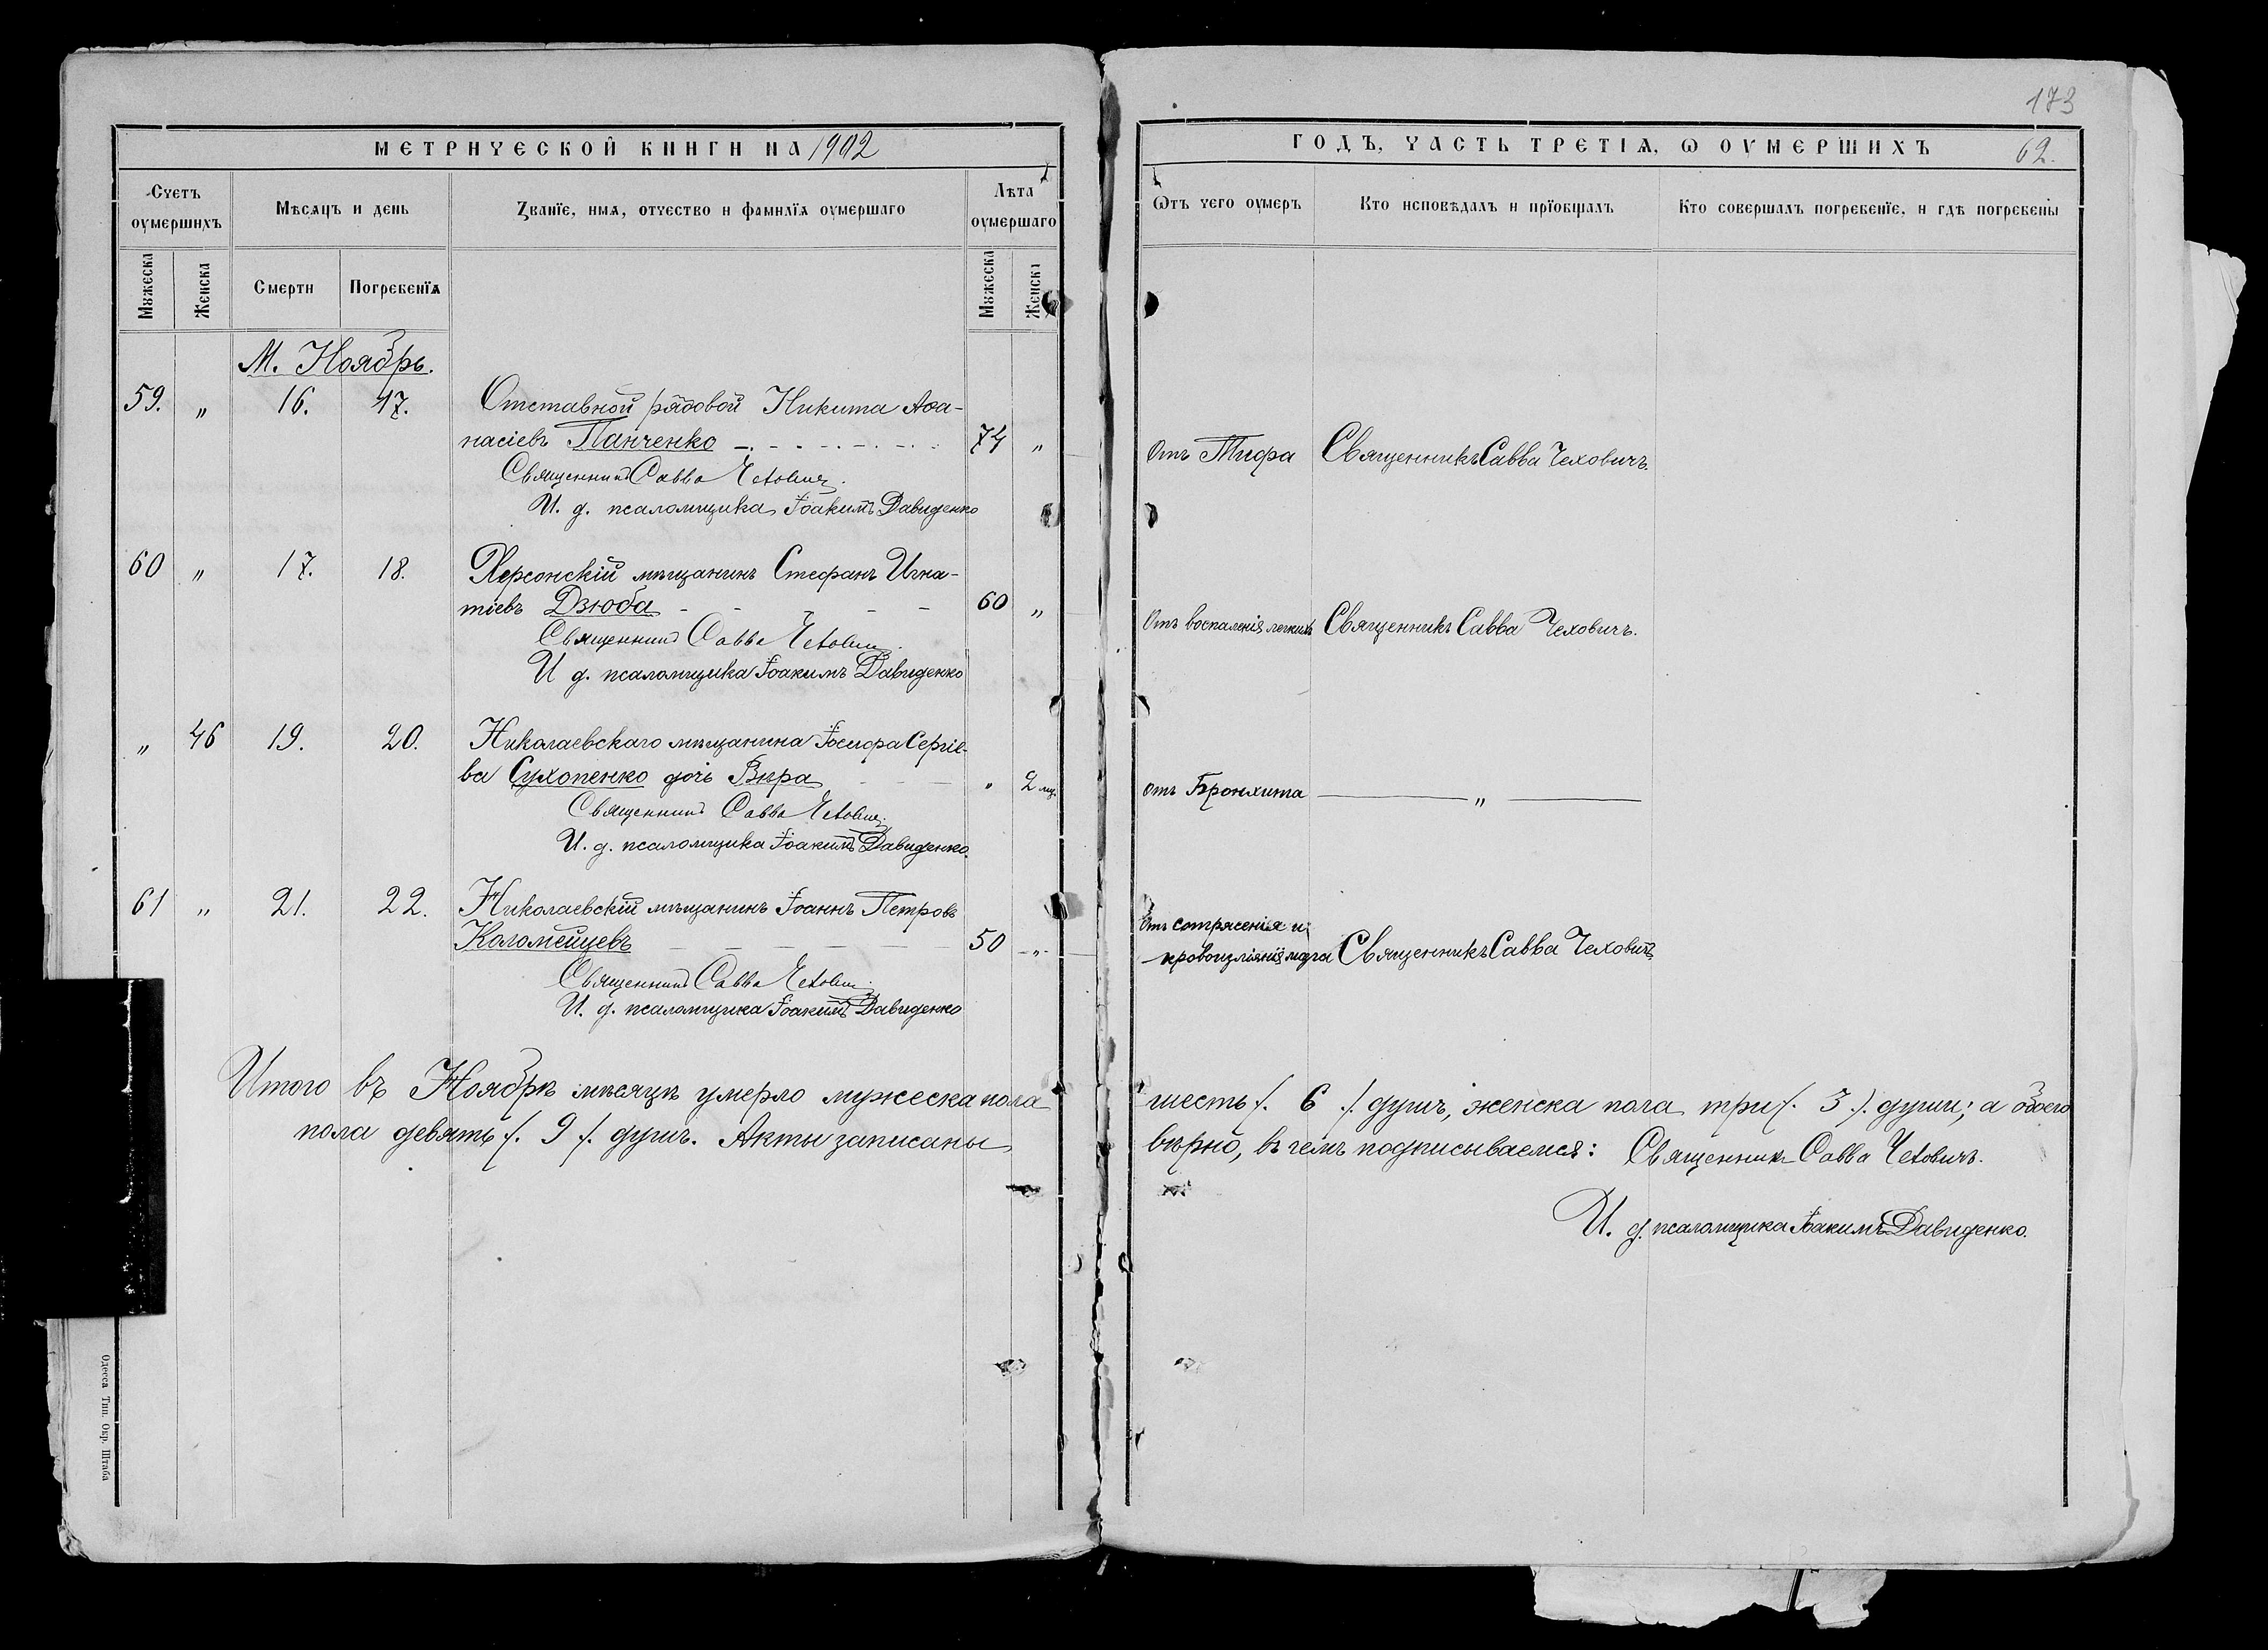 173
МЕТРИЧЕСКОЙ КНИГИ НА 1902
ГОДЪ, ЧАСТЬ ТРЕТІѦ, Ѡ ОУМЕРШИХЪ 62.
Счетъ оумершихъ
Мѣсяцъ и день
Званїе, имѧ, отчество и фамилїѧ оумершаго
Лѣта оумершаго
Ѿтъ чего оумеръ
Кто исповѣдалъ и прїобщалъ
Кто совершалъ погребенїе, и гдѣ погребены
Мꙋжеска
Женска
Смерти
Погребенїѧ
Мꙋжеска
Женска
М. Ноябрь.
59. „ 16. 17. Отставной рядовой Никита Аѳа-
насіевъ Панченко 74 „ Отъ Тифа Священникъ Савва Чеховичъ.
Священникъ Савва Чеховичъ.
И. д. псаломщика Іоакимъ Давиденко
60 „ 17. 18. Херсонскій мѣщанинъ Стефанъ Игна-
тіевъ Дзюба 60 „ Отъ воспаленія легкихъ Священникъ Савва Чеховичъ.
Священникъ Савва Чеховичъ.
И д. псаломщика Іоакимъ Давиденко
„ 46 19. 20. Николаевскаго мѣщанина Іосифа Сергіе-
ва Сухопенко дочь Вѣра „ 2 мц. отъ Бронхита — „ —
Священникъ Савва Чеховичъ.
И. д. псаломщика Іоакимъ Давиденко.
61 „ 21. 22. Николаевскій мѣщанинъ Іоаннъ Петровъ
Коломейцевъ 50 „ Отъ сотрясенія и
кровоизліянія мозга Священникъ Савва Чеховичъ
Священникъ Савва Чеховичъ.
И. д. псаломщика Іоакимъ Давиденко
Итого въ Ноябрѣ мѣсяцѣ умерло мужеска пола шесть /. 6 ./ душъ, женска пола три /. 3 ./ души; а обоего
пола девять /. 9 /. душъ. Акты записаны вѣрно, въ чемъ подписываемся: Священникъ Савва Чеховичъ.
И. д. псаломщика Іоакимъ Давиденко.
Одесса Тип. Окр. Штаба